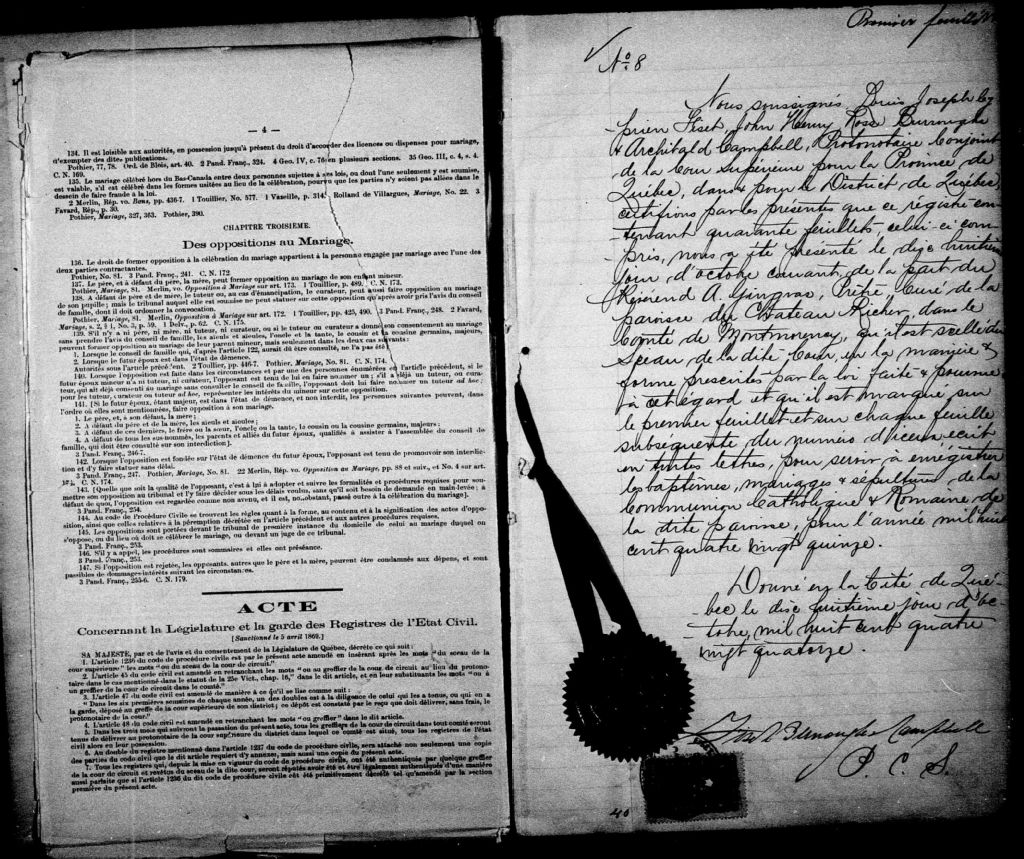 — 4 —
134. Il est loisible aux autorités, en possession jusqu'à présent du droit d'accorder des licences ou dispenses pour mariage,
d'exempter des dites publications.
Pothier, 77, 78. Ord. de Blois, art. 40. 2 Pand. Franç., 324. 4 Geo. IV, c. 76 en plusieurs sections. 35 Geo. III, c. 4, s. 4.
C. N. 169.
135. Le mariage célébré hors du Bas-Canada entre deux personnes sujettes à ses lois, ou dont l'une seulement y est soumise,
est valable, s'il est célébré dans les formes usitées au lieu de la célébration, pourvu que les parties n'y soient pas allées dans le
dessein de faire fraude à la loi.
2 Merlin, Rép. vo. Bans, pp. 436-7. 1 Touillier, No. 577. 1 Vazeille, p. 314. Rolland de Villargues, Mariage, No. 22. 3
Favard, Rép., p. 30.
Pothier, Mariage, 327, 363. Pothier, 390.
CHAPITRE TROISIÈME.
Des oppositions au Mariage.
136. Le droit de former opposition à la célébration du mariage appartient à la personne engagée par mariage avec l'une des
deux parties contractantes.
Pothier, No. 81. 3 Pand. Franç., 241. C. N. 172
137. Le père, et à défaut du père, la mère, peut former opposition au mariage de son enfant mineur.
Pothier, Mariage, 81. Merlin, vo. Opposition à Mariage sur art. 173. 1 Touillier, p. 489. C. N. 173.
138. A défaut de père et de mère, le tuteur, ou, au cas d'émancipation, le curateur, peut aussi faire opposition au mariage
de son pupille; mais le tribunal auquel elle est soumise ne peut statuer sur cette opposition qu'après avoir pris l'avis du conseil
de famille, dont il doit ordonner la convocation.
Pothier, Mariage, 81. Merlin, Opposition à Mariage sur art. 172. 1 Touillier, pp. 425, 490. 3 Pand. Franç., 248. 2 Favard,
Mariage, s. 2, § 1, No. 3, p. 59. 1 Delv., p. 62. C. N. 175.
139. S'il n'y a ni père, ni mère, ni tuteur, ni curateur, ou si le tuteur ou curateur a donné son consentement au mariage
sans prendre l'avis du conseil de famille, les aïeuls et aïeules, l'oncle et la tante, le cousin et la cousine germains, majeurs,
peuvent former opposition au mariage de leur parent mineur, mais seulement dans les deux cas suivants:
1. Lorsque le conseil de famille qui, d'après l'article 122, aurait dû être consulté, ne l'a pas été;
2. Lorsque le futur époux est dans l'état de démence.
Autorités sous l'article précédent. 2 Touillier, pp. 446-7. Pothier, Mariage, No. 81. C. N. 174.
140. Lorsque l'opposition est faite dans les circonstances et par une des personnes énumérées en l'article précédent, si le
futur époux mineur n'a ni tuteur, ni curateur, l'opposant est tenu de lui en faire nommer un; s'il a déjà un tuteur, ou cura-
teur, qui ait déjà consenti au mariage sans consulter le conseil de famille, l'opposant doit lui faire nommer un tuteur ad hoc;
pour les tuteur, curateur ou tuteur ad hoc, représenter les intérêts du mineur sur cette opposition.
141. [Si le futur époux, étant majeur, est dans l'état de démence, et non interdit, les personnes suivantes peuvent, dans
l'ordre où elles sont mentionnées, faire opposition à son mariage.
1. Le père, et, à son défaut, la mère;
2. A défaut du père et de la mère, les aïeuls et aïeules;
3. A défaut de ces derniers, le frère ou la sœur, l'oncle ou la tante, le cousin ou la cousine germains, majeurs;
4. A défaut de tous les sus-nommés, les parents et alliés du futur époux, qualifiés à assister à l'assemblée du conseil de
famille, qui doit être consulté sur son interdiction].
3 Pand. Franç., 246-7.
142. Lorsque l'opposition est fondée sur l'état de démence du futur époux, l'opposant est tenu de promouvoir son interdic-
tion et d'y faire statuer sans délai.
3 Pand. Franç., 247. Pothier, Mariage, No. 81. 22 Merlin, Rép. vo. Opposition au Mariage, pp 88 et suiv., et No. 4 sur art.
174. C. N. 174.
143. [Quelle que soit la qualité de l'opposant, c'est à lui à adopter et suivre les formalités et procédures requises pour sou-
mettre son opposition au tribunal et l'y faire décider sous les délais voulus, sans qu'il soit besoin de demande en main-levée; à
défaut de quoi, l'opposition est regardée comme non avenu, et il est, nonobstant, passé outre à la célébration du mariage].
3 Pand. Franç., 254.
144. Au code de Procédure Civile se trouvent les règles quant à la forme, au contenu et à la signification des actes d'oppo-
sition, ainsi que celles relatives à la péremption décrétée en l'article précédent et aux autres procédures requises.
145. Les oppositions sont portées devant le tribunal de première instance du domicile de celui au mariage duquel on
s'oppose, ou du lieu où doit se célébrer le mariage, ou devant un juge de ce tribunal.
3 Pand. Franç., 253.
146. S'il y a appel, les procédures sont sommaires et elles ont préséance.
3 Pand. Franç., 253.
147. Si l'opposition est rejetée, les opposants, autres que le père et la mère, peuvent être condamnés aux dépens, et sont
passibles de dommages-intérêts suivant les circonstances.
3 Pand. Franç., 255-6. C. N. 179.
ACTE
Concernant la Législature et la garde des Registres de l'Etat Civil.
[Sanctionné le 5 avril 1869.]
SA MAJESTE, par et de l'avis et du consentement de la Législature de Québec, décrète ce qui suit:
1. L'article 1236 du code de procédure civile est par le présent acte amendé en insérant après les mots "du sceau de la
cour supérieure" les mots "ou du sceau de la cour de circuit."
2. L'article 45 du code civil est amendé en retranchant les mots "ou au greffier de la cour de circuit au lieu du protono-
taire dans le cas mentionné dans le statut de la 25e Vict., chap. 16," dans le dit article, et en leur substituants les mots "ou à
un greffier de la cour de circuit dans le comté."
3. L'article 47 du code civil est amendé de manière à ce qu'il se lise comme suit:
"Dans les six premières semaines de chaque année, un des doubles est à la diligence de celui qui les a tenus, ou qui en a
la garde, déposé au greffe de la cour supérieure de son district; ce dépôt est constaté par le reçu que doit délivrer, sans frais, le
protonotaire de la cour."
4. L'article 48 du code civil est amendé en retranchant les mots "ou greffier" dans le dit article.
5. Dans les trois mois qui suivront la passation du présent acte, tous les greffiers de la cour de circuit dans tout comté seront
tenus de délivrer au protonotaire de la cour supérieure du district dans lequel ce comté est situé, tous les registres de l'état
civil alors en leur possession.
6. Au double du registre mentionné dans l'article 1237 du code de procédure civile, sera attaché non seulement une copie
des parties du code civil que le dit article requiert d'y annexer, mais aussi une copie du présent acte.
7. Tous les registres qui, depuis la mise en vigueur du code de procédure civile, ont été authentiqués par quelque greffier
de la cour de circuit et revêtus du sceau de la dite cour, seront réputés avoir été et être légalement authentiqués d'une manière
aussi parfaite que si l'article 1236 du dit code de procédure civile eût été primitivement décrété tel qu'amendé par la section
première du présent acte.
Premier feuillet
No 8
Nous soussignés Louis Joseph Cy-
prien Fiset, John Henry Ross Burroughs
& Archibald Campbell, Protonotaire Conjoint
de la Cour Supérieure pour la Province de
Québec, dans & pour le District de Québec,
certifions par les présentes que ce régistre con-
-tenant quarante feuillets, celui-ci com-
pris, nous a été présenté le dix huitième
jour d'octobre courant, de la part du
Révérend A. Gingras, Prêtre, Curé de la
paroisse du Château Richer, dans le
Comté de Montmorency, qu'il est scellé du
Sceau de la dite Cour, en la manière &
forme prescrites par la loi faite & pourvue
à cet égard et qu'il est marqué sur
le premier feuillet et sur chaque feuille
subséquente du numéro d'icelui écrit
en toutes lettres, pour servir à enregistrer
les baptêmes, mariages & sépultures de la
Communion Catholique & Romaine de
la dite paroisse, pour l'année mil huit
cent quatre vingt quinze.
Donné en la Cité de Qué-
-bec le dix huitième jour d'Oc-
-tobre, mil huit cent quatre
vingt quatorze.
Fiset Burroughs Campbell
P. C. S.
40